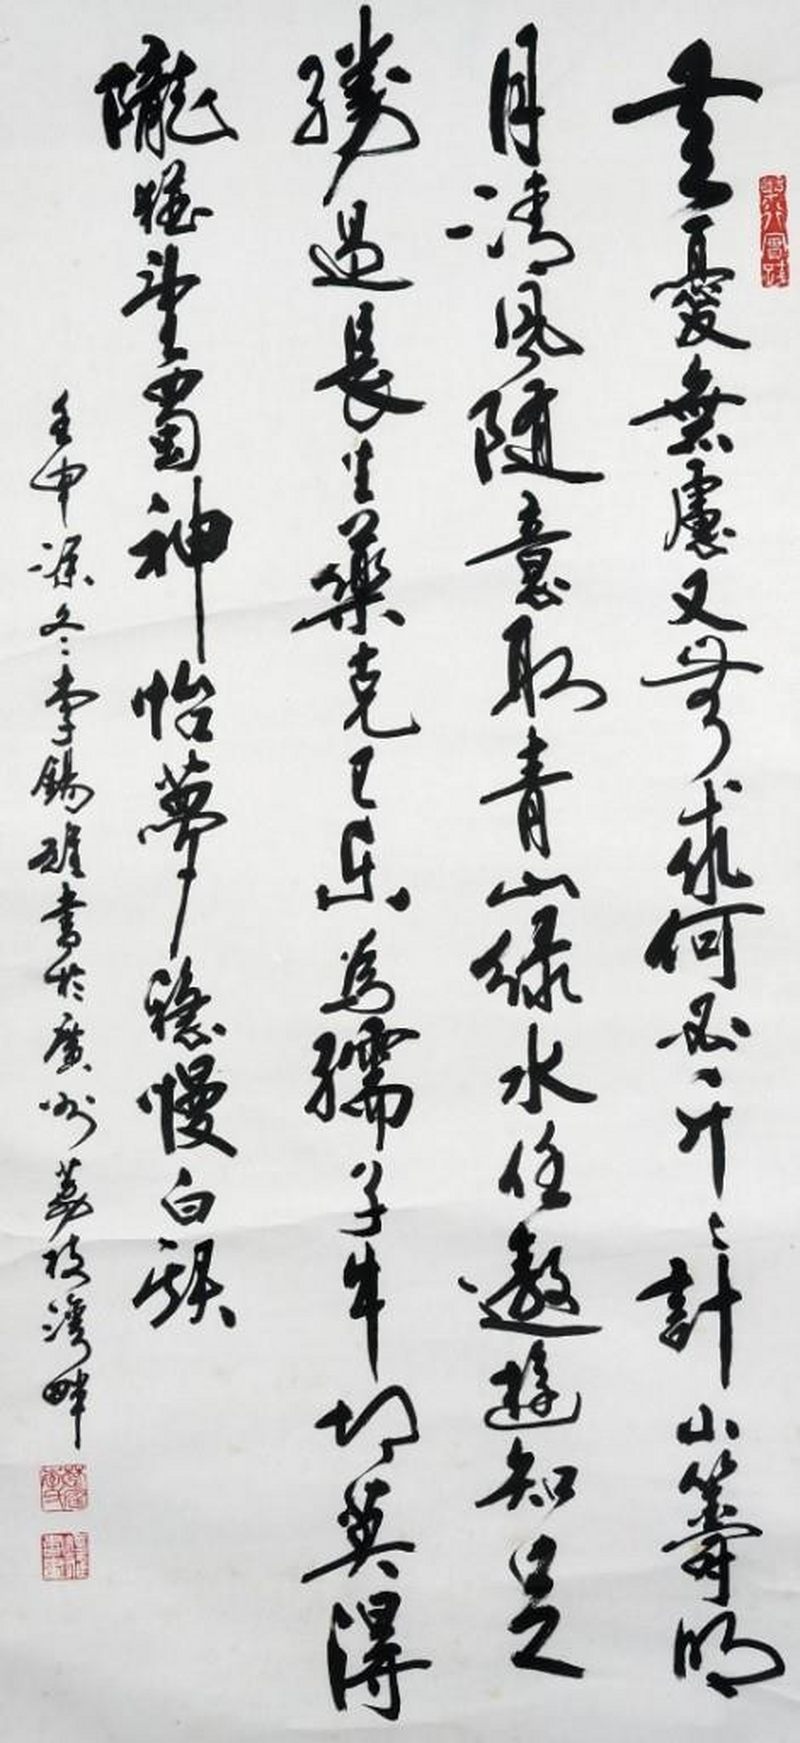 無憂無慮又無求何必斤斤計小籌明
月清風隨意取青山綠水任遨遊知足
勝過長生藥克己樂為孺子牛切莫得
隴猶望蜀神怡夢穩慢白頭
壬申深冬李錫雄書於廣州荔枝灣畔